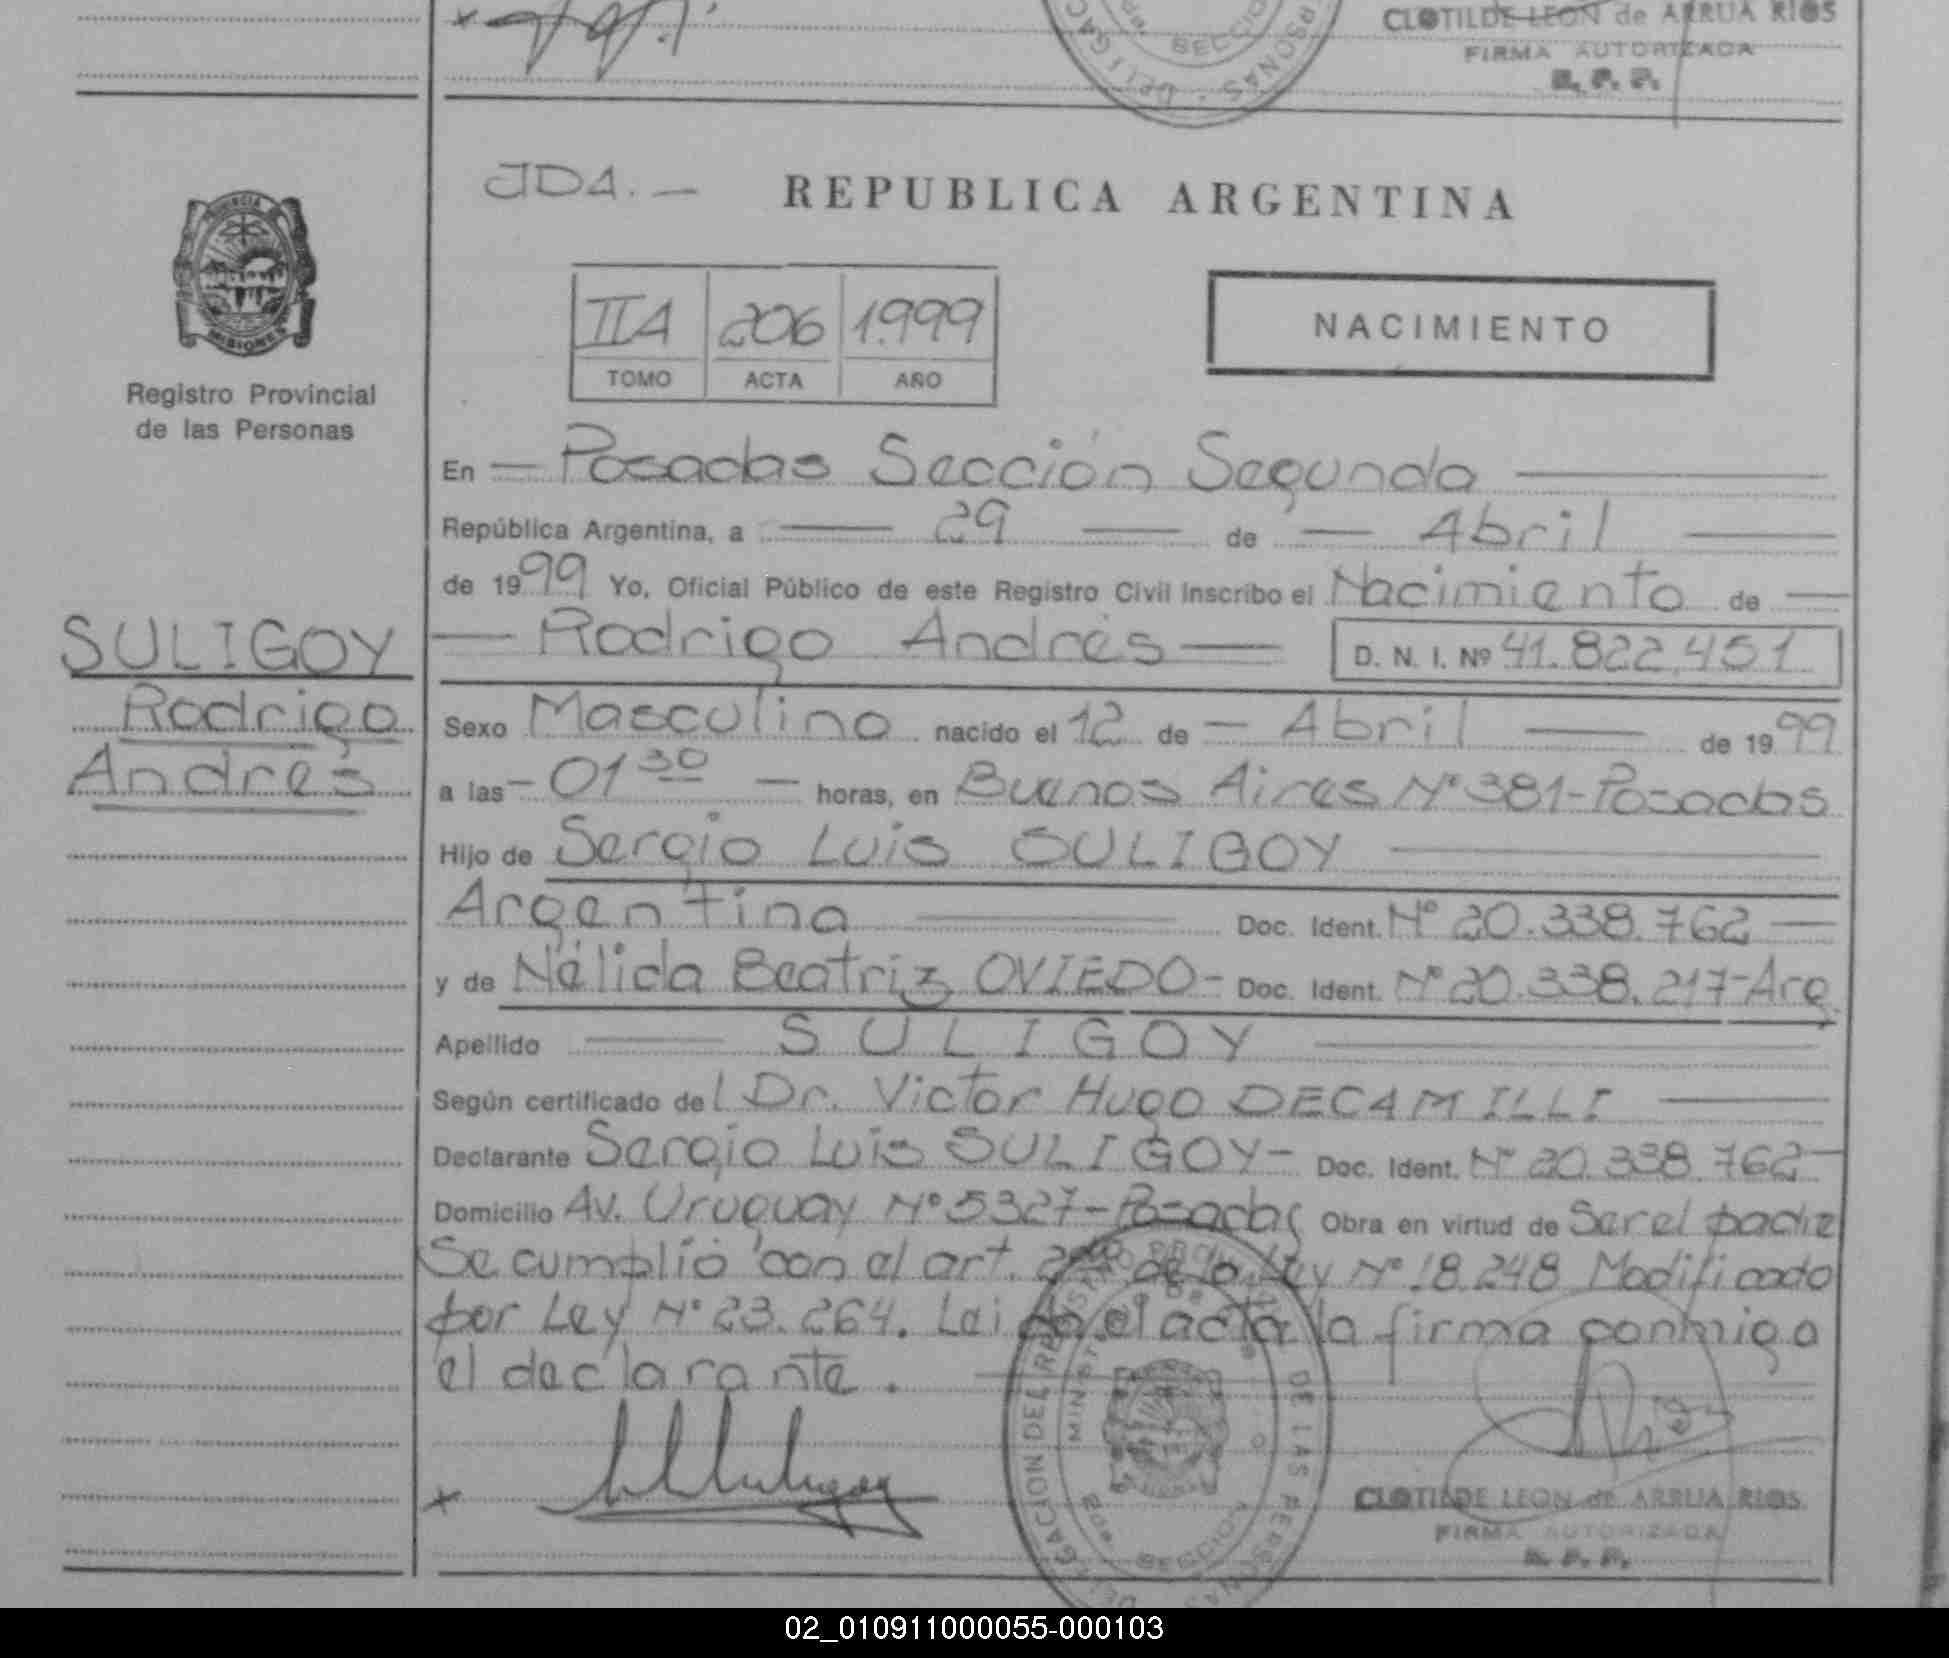 CLOTILDE LEON de ARRUA RIOS
FIRMA AUTORIZADA
R. P. P.
SECCIO
DELEGAC
RSONAS
JDA.-
REPUBLICA ARGENTINA
PROVINCIA
MISIONES
Registro Provincial
de las Personas
IIA 206 1.999
TOMO ACTA AÑO
NACIMIENTO
En - Posadas Sección Segunda
República Argentina, a 29 de - Abril
de 1999 Yo, Oficial Público de este Registro Civil Inscribo el Nacimiento de
SULIGOY
Rodrigo
Andrés
Rodrigo Andrés D. N. I. Nº 41.822.451
Sexo Masculino nacido el 12 de - Abril de 1999
a las - 01 30 - horas, en Buenos Aires Nº 381-Posadas
Hijo de Sergio Luis SULIGOY
Argentino Doc. Ident. Nº 20.338.762
y de Nélida Beatriz OVIEDO- Doc. Ident. Nº 20.338.217-Arg
Apellido SULIGOY
Según certificado del Dr. Victor Hugo DECAMILLI
Declarante Sergio Luis SULIGOY- Doc. Ident. Nº 20.338.762
Domicilio Av. Uruguay Nº 5327-Posadas Obra en virtud de Ser el padre
Se cumplió con el art. de la Ley Nº 18.248 Modificado
por Ley Nº 23.264. Leida el acta la firma conmigo
el declarante.
x
DELEGACION DEL REGISTRO PROVINCIAL DE LAS PERSONAS
MINISTERIO DE
SECCION 2da
CLOTILDE LEON de ARRUA RIOS
FIRMA AUTORIZADA
R. P. P.
02_010911000055-000103